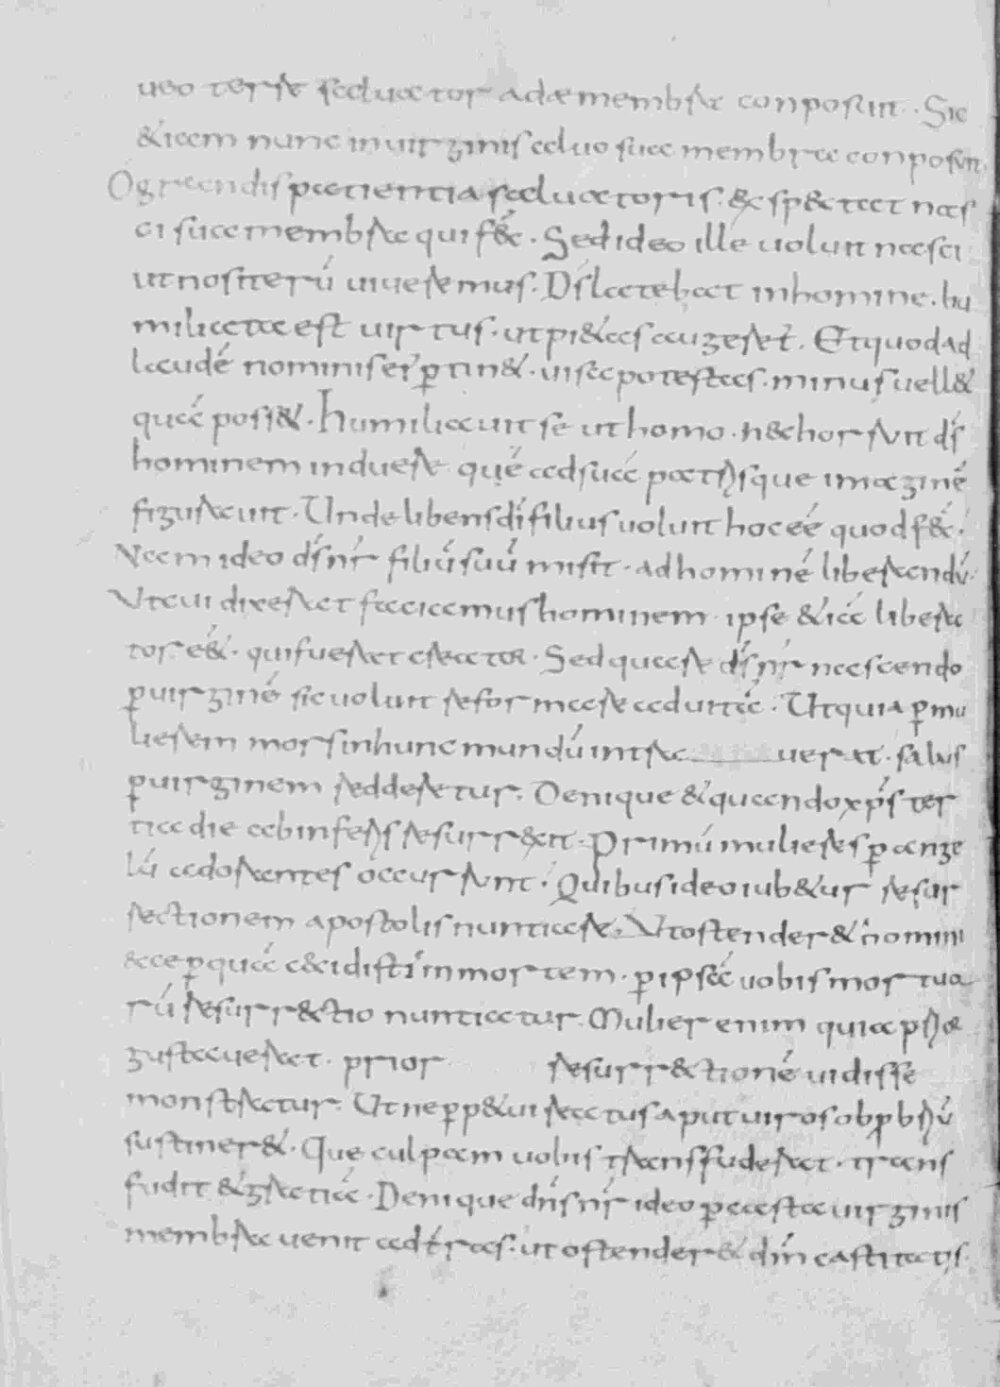 uo terre saluator adae membra conposuit. Sic
& iam nunc in uirginis aluo sua membra conposuit,
O grandis patientia saluatoris. & sp&tat nas
ci sua membra qui fec&. Sed ideo ille uoluit nasci
ut nos iterū uiueremus. Dſ latebat in homine. hu
miliata est uirtus. ut pi&as augeret. Et quod ad
laudē nominis ei ꝑtin&. uisa potestas. minus uell&
quā poss&. Humiliauit se ut homo. n& horruit dſ
hominem induere quē ad suā patrisque imaginē
figurauit. Unde libens dī filius uoluit hoc eē quod fec&.
Nam ideo dſ nr̄ filiū suū misit. ad hominē liberandū.
Ut cui dixerat faciamus hominem. ipse & iā libera
tor eē&. qui fuerat creator. Sed quare dſ nr̄ nascendo
ꝑ uirginē sic uoluit reformare ad uitā. Ut quia ꝑ mu
lierem mors in hunc mundū intra uerat. salus
ꝑ uirginem redderetur. Denique & quando xp̄s ter
tia die ab inferis resurr&it. Primū mulieres ꝑ ange
lū adorantes occurrunt. Quibus ideo iub&ur resur
rectionem apostolis nuntiare. Ut ostender& homini
ecce ꝑ quā cecidistī in mortem. ꝑ ipsā uobis mortuo
rū resurr&tio nuntiatur. Mulier enim quia
gustauerat. prior resurr&tionē uidisse
monstratur. Ut ne ꝑp&ui reatus aput uiros obprobriū
sustiner&. Que culpam uobis transfuderat. trans
fudit & gratiā. Denique dn̄s nr̄ ideo ꝑ casta uirginis
membra uenit ad tr̄as. ut ostender& dm̄ castitatis